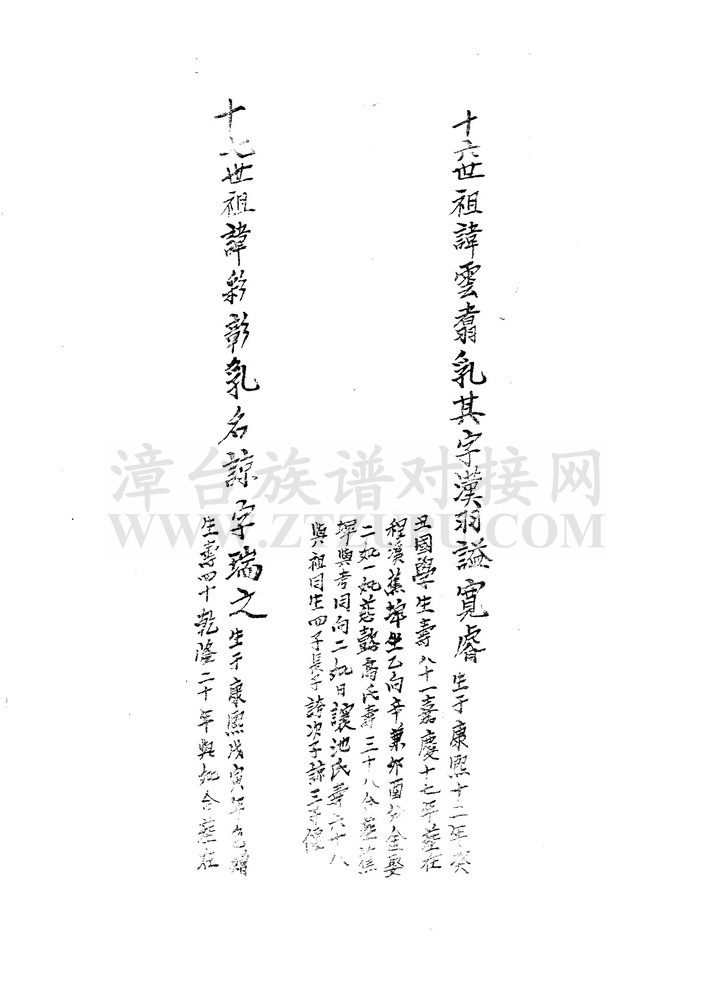 十六世祖諱雲翥乳其字漢羽謚寬睿生于康熙十二年癸
丑國學生壽八十一嘉慶十七年葬在
程溪蕉埤坐乙向辛兼卯酉分金娶
二妣一妣慈懿高氏壽三十八合葬蕉
埤與考同向二妣日讓池氏壽六十八
與祖同生四子長子諒三子
十七世祖諱彩彰乳名諒字瑞之生于康熙戊寅年邑增
生壽四十乾隆二十年與妣合葬在
漳台族谱对接网
WWW.ZTZUPU.COM